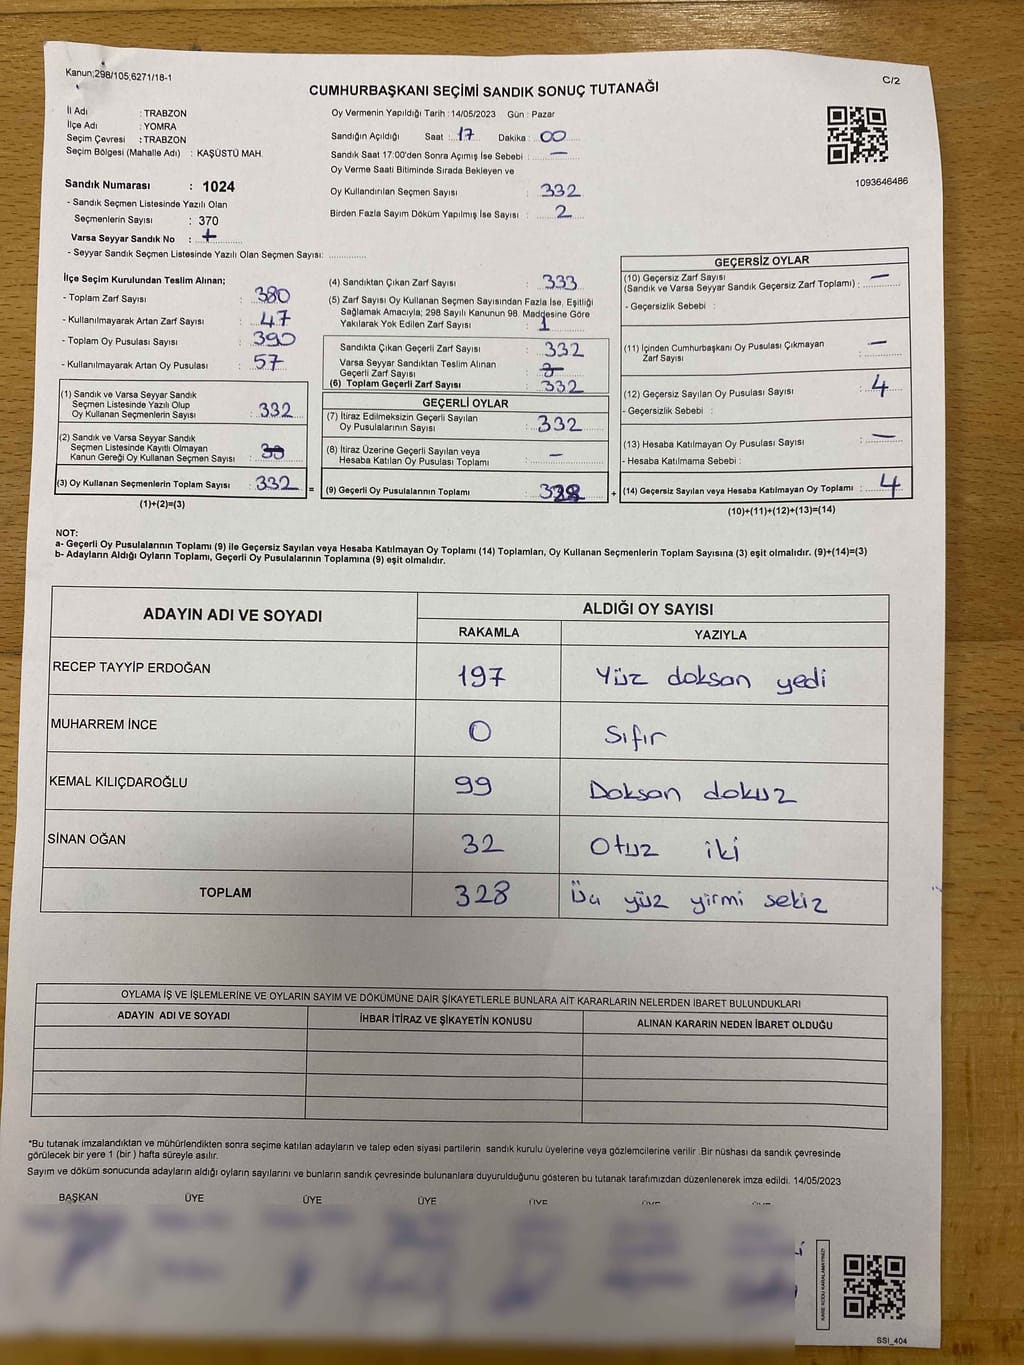 Kanun;298/105,6271/18-1
C/2
CUMHURBAŞKANI SEÇİMİ SANDIK SONUÇ TUTANAĞI
İl Adı : TRABZON
İlçe Adı : YOMRA
Seçim Çevresi : TRABZON
Seçim Bölgesi (Mahalle Adı) : KAŞÜSTÜ MAH.
Sandık Numarası : 1024
- Sandık Seçmen Listesinde Yazılı Olan
Seçmenlerin Sayısı : 370
Varsa Seyyar Sandık No : +
- Seyyar Sandık Seçmen Listesinde Yazılı Olan Seçmen Sayısı:
Oy Vermenin Yapıldığı Tarih : 14/05/2023 Gün : Pazar
Sandığın Açıldığı Saat : 17 Dakika : 00
Sandık Saat 17:00'den Sonra Açımış İse Sebebi : —
Oy Verme Saati Bitiminde Sırada Bekleyen ve
Oy Kullandırılan Seçmen Sayısı : 332
Birden Fazla Sayım Döküm Yapılmış İse Sayısı : 2
1093646486
İlçe Seçim Kurulundan Teslim Alınan;
- Toplam Zarf Sayısı : 380
- Kullanılmayarak Artan Zarf Sayısı : 47
- Toplam Oy Pusulası Sayısı : 390
- Kullanılmayarak Artan Oy Pusulası : 57
(1) Sandık ve Varsa Seyyar Sandık
Seçmen Listesinde Yazılı Olup
Oy Kullanan Seçmenlerin Sayısı : 332
(2) Sandık ve Varsa Seyyar Sandık
Seçmen Listesinde Kayıtlı Olmayan
Kanun Gereği Oy Kullanan Seçmen Sayısı :
(3) Oy Kullanan Seçmenlerin Toplam Sayısı : 332
(1)+(2)=(3)
=
(4) Sandıktan Çıkan Zarf Sayısı : 333
(5) Zarf Sayısı Oy Kullanan Seçmen Sayısından Fazla İse, Eşitliği
Sağlamak Amacıyla; 298 Sayılı Kanunun 98. Maddesine Göre
Yakılarak Yok Edilen Zarf Sayısı : 1
Sandıkta Çıkan Geçerli Zarf Sayısı : 332
Varsa Seyyar Sandıktan Teslim Alınan
Geçerli Zarf Sayısı :
(6) Toplam Geçerli Zarf Sayısı : 332
GEÇERLİ OYLAR
(7) İtiraz Edilmeksizin Geçerli Sayılan
Oy Pusulalarının Sayısı : 332
(8) İtiraz Üzerine Geçerli Sayılan veya
Hesaba Katılan Oy Pusulası Toplamı : —
(9) Geçerli Oy Pusulalarının Toplamı : 328
+
GEÇERSİZ OYLAR
(10) Geçersiz Zarf Sayısı
(Sandık ve Varsa Seyyar Sandık Geçersiz Zarf Toplamı) : —
- Geçersizlik Sebebi :
(11) İçinden Cumhurbaşkanı Oy Pusulası Çıkmayan
Zarf Sayısı : —
(12) Geçersiz Sayılan Oy Pusulası Sayısı : 4
- Geçersizlik Sebebi :
(13) Hesaba Katılmayan Oy Pusulası Sayısı : —
- Hesaba Katılmama Sebebi :
(14) Geçersiz Sayılan veya Hesaba Katılmayan Oy Toplamı : 4
(10)+(11)+(12)+(13)=(14)
NOT:
a- Geçerli Oy Pusulalarının Toplamı (9) ile Geçersiz Sayılan veya Hesaba Katılmayan Oy Toplamı (14) Toplamları, Oy Kullanan Seçmenlerin Toplam Sayısına (3) eşit olmalıdır. (9)+(14)=(3)
b- Adayların Aldığı Oyların Toplamı, Geçerli Oy Pusulalarının Toplamına (9) eşit olmalıdır.
ADAYIN ADI VE SOYADI
ALDIĞI OY SAYISI
RAKAMLA YAZIYLA
RECEP TAYYİP ERDOĞAN 197 Yüz doksan yedi
MUHARREM İNCE 0 Sıfır
KEMAL KILIÇDAROĞLU 99 Doksan dokuz
SİNAN OĞAN 32 Otuz iki
TOPLAM 328 Üç yüz yirmi sekiz
OYLAMA İŞ VE İŞLEMLERİNE VE OYLARIN SAYIM VE DÖKÜMÜNE DAİR ŞİKAYETLERLE BUNLARA AİT KARARLARIN NELERDEN İBARET BULUNDUKLARI
ADAYIN ADI VE SOYADI İHBAR İTİRAZ VE ŞİKAYETİN KONUSU ALINAN KARARIN NEDEN İBARET OLDUĞU
*Bu tutanak imzalandıktan ve mühürlendikten sonra seçime katılan adayların ve talep eden siyasi partilerin sandık kurulu üyelerine veya gözlemcilerine verilir .Bir nüshası da sandık çevresinde
görülecek bir yere 1 (bir ) hafta süreyle asılır.
Sayım ve döküm sonucunda adayların aldığı oyların sayılarını ve bunların sandık çevresinde bulunanlara duyurulduğunu gösteren bu tutanak tarafımızdan düzenlenerek imza edildi. 14/05/2023
BAŞKAN ÜYE ÜYE ÜYE ÜYE ÜYE ÜYE
KARE KODU KARALAMAYINIZ!
SSI_404